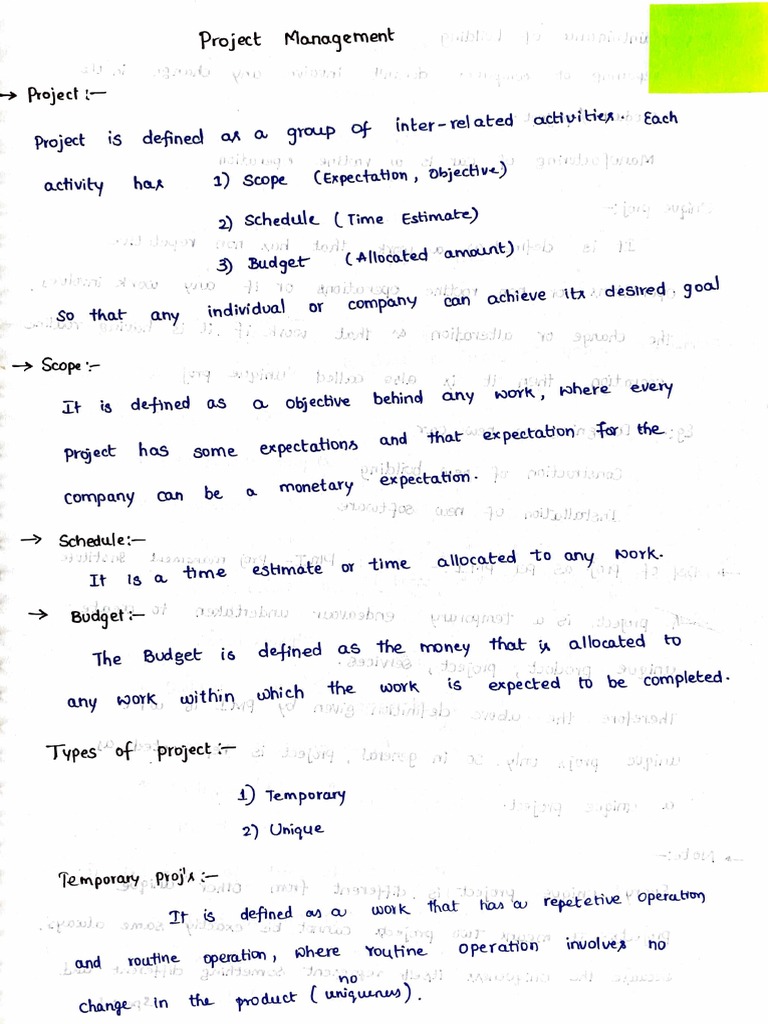 Project Management
→ Project :-
Project is defined as a group of inter-related activities. Each
activity has 1) Scope (Expectation, Objective)
2) Schedule (Time Estimate)
3) Budget (Allocated amount)
so that any individual or company can achieve its desired goal
→ Scope :-
It is defined as a objective behind any work, where every
Project has some expectations and that expectation for the
company can be a monetary expectation.
→ Schedule :-
It is a time estimate or time allocated to any work.
→ Budget :-
The Budget is defined as the money that is allocated to
any work within which the work is expected to be completed.
Types of project :-
1) Temporary
2) Unique
Temporary Proj's :-
It is defined as a work that has a repetetive operation
and routine operation, where routine operation involves no
change in the product (no uniqueness).